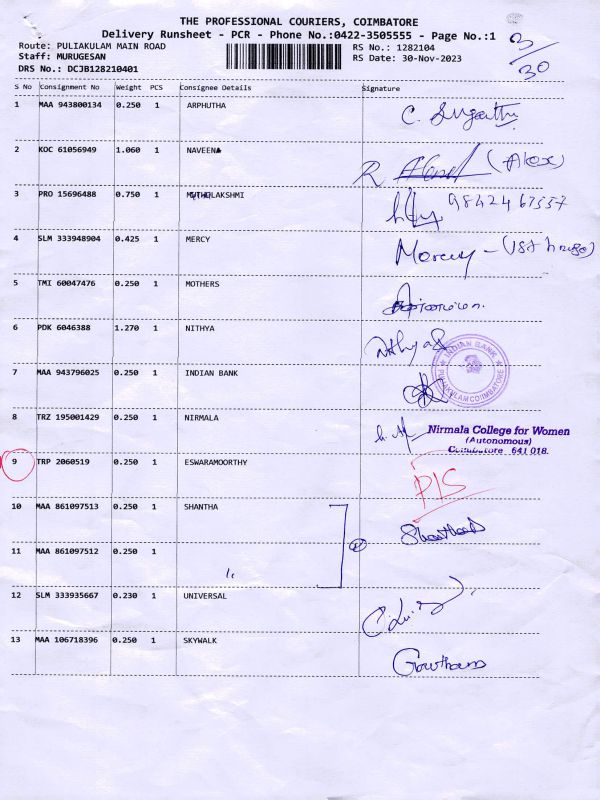 THE PROFESSIONAL COURIERS, COIMBATORE
Delivery Runsheet - PCR - Phone No.:0422-3505555 - Page No.:1
3/30
Route: PULIAKULAM MAIN ROAD RS No.: 1282104
Staff: MURUGESAN RS Date: 30-Nov-2023
DRS No.: DCJB128210401
S No Consignment No Weight PCS Consignee Details Signature
1 MAA 943800134 0.250 1 ARPHUTHA
2 KOC 61056949 1.060 1 NAVEENA R (Alex)
3 PRO 15696488 0.750 1 MUTHULAKSHMI
4 SLM 333948904 0.425 1 MERCY Mercy
5 TMI 60047476 0.250 1 MOTHERS
6 PDK 6046388 1.270 1 NITHYA Nithya
INDIAN BANK
PULIAKULAM COIMBATORE
7 MAA 943796025 0.250 1 INDIAN BANK
8 TRZ 195001429 0.250 1 NIRMALA Nirmala College for Women
(Autonomous)
Coimbatore 641 018.
9 TRP 2060519 0.250 1 ESWARAMOORTHY
10 MAA 861097513 0.250 1 SHANTHA
11 MAA 861097512 0.250 1
12 SLM 333935667 0.230 1 UNIVERSAL
13 MAA 106718396 0.250 1 SKYWALK Gowtham